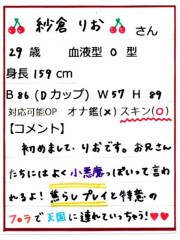 紗倉 りお さん
29 歳 血液型 O 型
身長 159 cm
B 86 (Dカップ) W 57 H 89
対応可能OP オナ鑑(×) スキン(○)
【コメント】
初めまして、りおです。お兄さん
たちにはよく小悪魔っぽいって言わ
れるよ! 焦らしプレイと特意の
フ○ラで天国に連れていっちゃう!♥♥